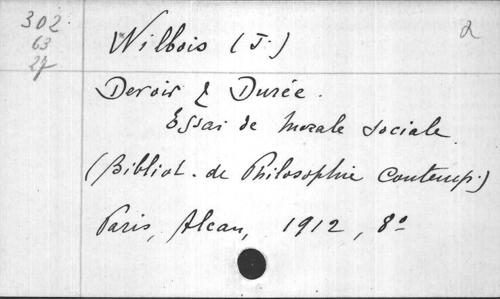 302
63
27
Wilbois (J.)
2
Devoir & Durée.
Essai de morale sociale
(Bibliot. de Philosophie Contemp.)
Paris, Alcan, 1912, 8º